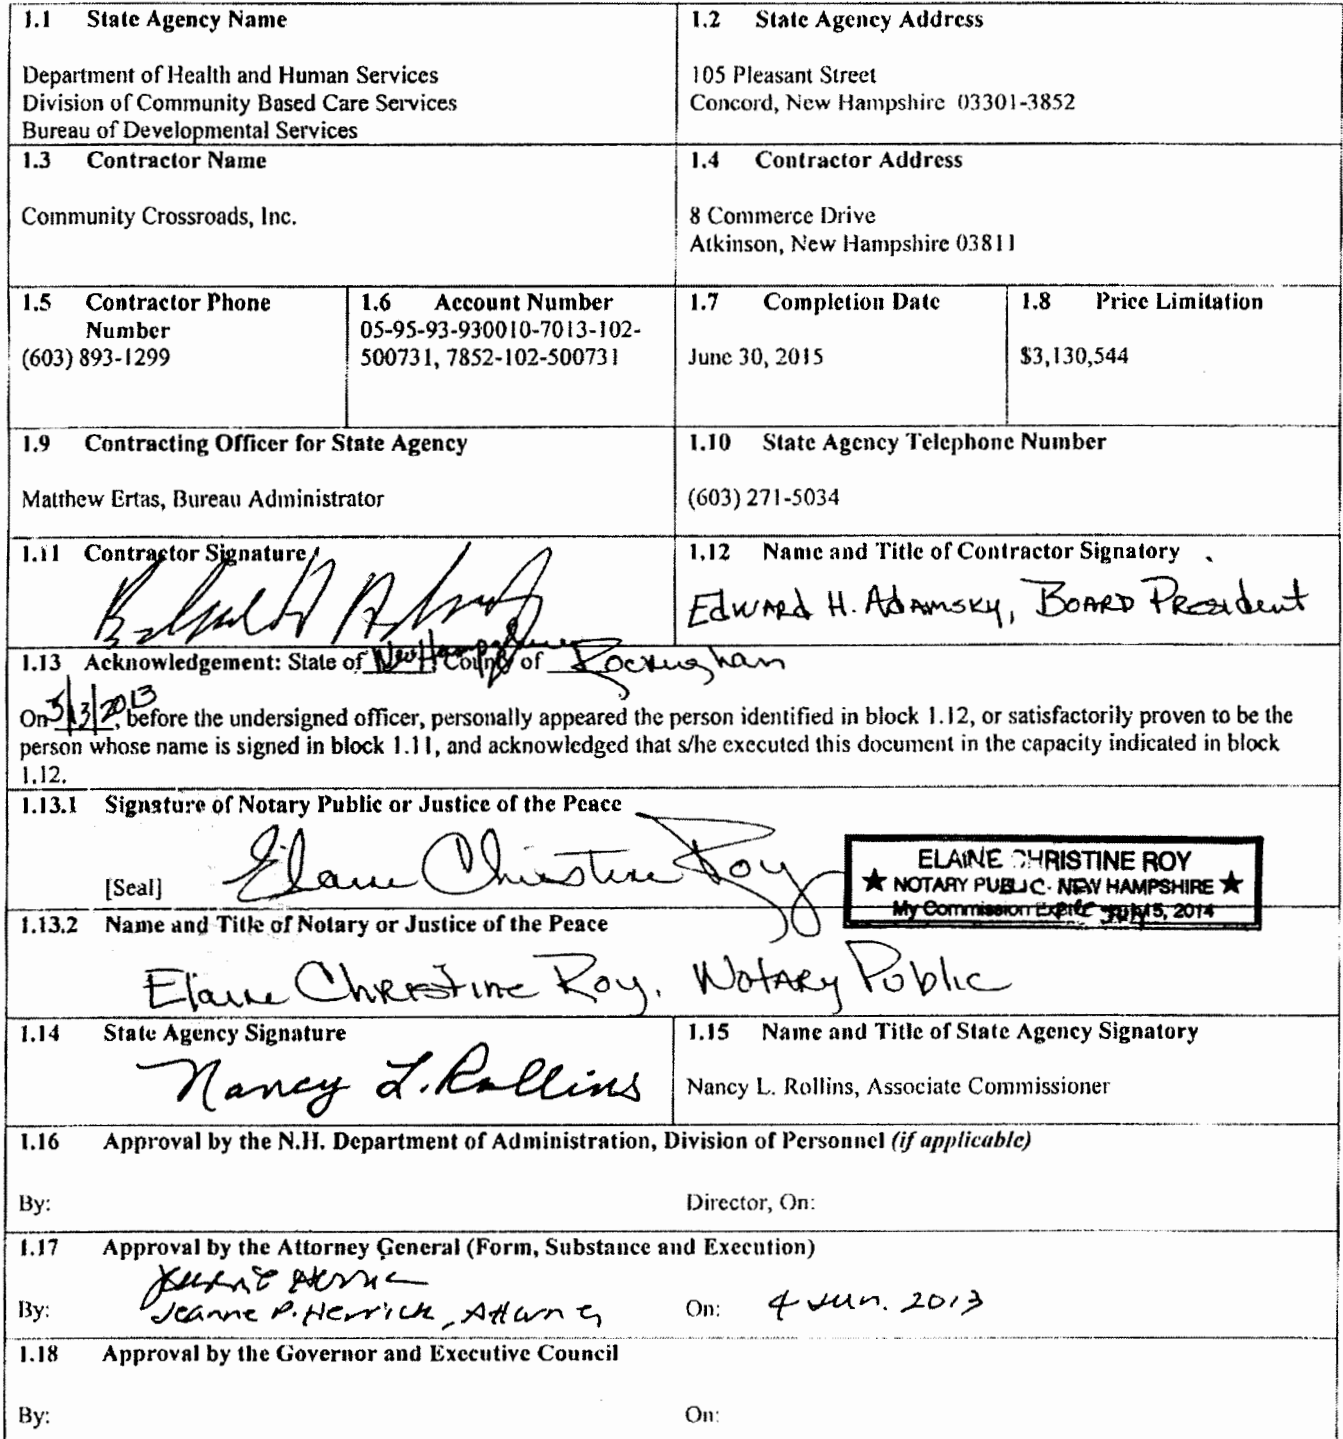 1.1 State Agency Name
Department of Health and Human Services
Division of Community Based Care Services
Bureau of Developmental Services
1.2 State Agency Address
105 Pleasant Street
Concord, New Hampshire 03301-3852
1.3 Contractor Name
Community Crossroads, Inc.
1.4 Contractor Address
8 Commerce Drive
Atkinson, New Hampshire 03811
1.5 Contractor Phone
Number
(603) 893-1299
1.6 Account Number
05-95-93-930010-7013-102-
500731, 7852-102-500731
1.7 Completion Date
June 30, 2015
1.8 Price Limitation
$3,130,544
1.9 Contracting Officer for State Agency
Matthew Ertas, Bureau Administrator
1.10 State Agency Telephone Number
(603) 271-5034
1.11 Contractor Signature
1.12 Name and Title of Contractor Signatory
Edward H. Adamsky, Board President
1.13 Acknowledgement: State of New Hampshire, County of Rockingham
On 5/13/2013, before the undersigned officer, personally appeared the person identified in block 1.12, or satisfactorily proven to be the
person whose name is signed in block 1.11, and acknowledged that s/he executed this document in the capacity indicated in block
1.12.
1.13.1 Signature of Notary Public or Justice of the Peace
[Seal] Elaine Christine Roy
ELAINE CHRISTINE ROY
★ NOTARY PUBLIC - NEW HAMPSHIRE ★
My Commission Expires 15, 2014
1.13.2 Name and Title of Notary or Justice of the Peace
Elaine Christine Roy, Notary Public
1.14 State Agency Signature
Nancy L. Rollins
1.15 Name and Title of State Agency Signatory
Nancy L. Rollins, Associate Commissioner
1.16 Approval by the N.H. Department of Administration, Division of Personnel (if applicable)
By: Director, On:
1.17 Approval by the Attorney General (Form, Substance and Execution)
By: Jeanne P. Herrick, Attorney On: 4 Jun. 2013
1.18 Approval by the Governor and Executive Council
By: On: